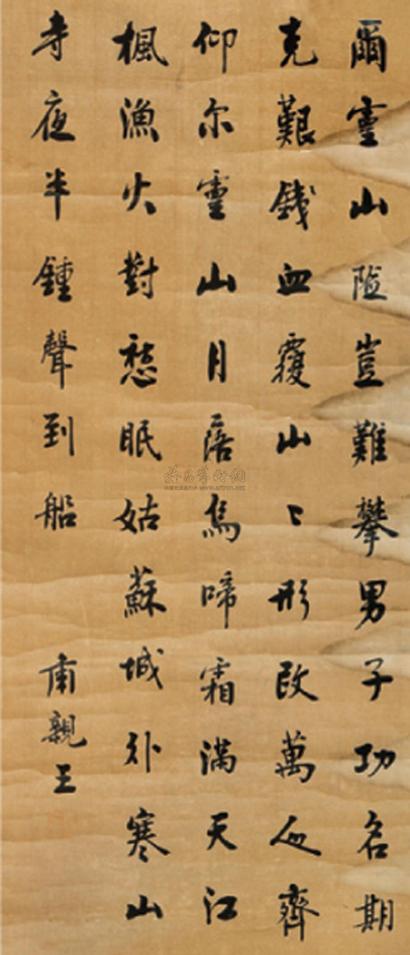 爾靈山险豈難攀男子功名期
克艱銭血覆山〻形改萬人齊
仰尔靈山月落烏啼霜滿天江
楓漁火對愁眠姑蘇城外寒山
寺夜半鍾聲到船
肅親王